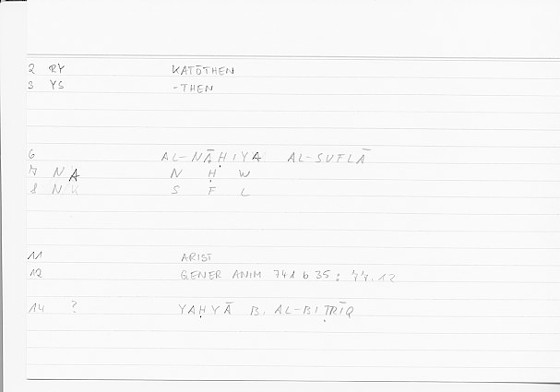 2 RY KATŌTHEN
3 YS -THEN
6 AL-NĀḤIYA AL-SUFLĀ
7 NA N Ḥ W
8 NK S F L
11 ARIST
12 GENER ANIM 741 b 35 : 77.12
14 ? YAḤYĀ B. AL-BIṬRĪQ